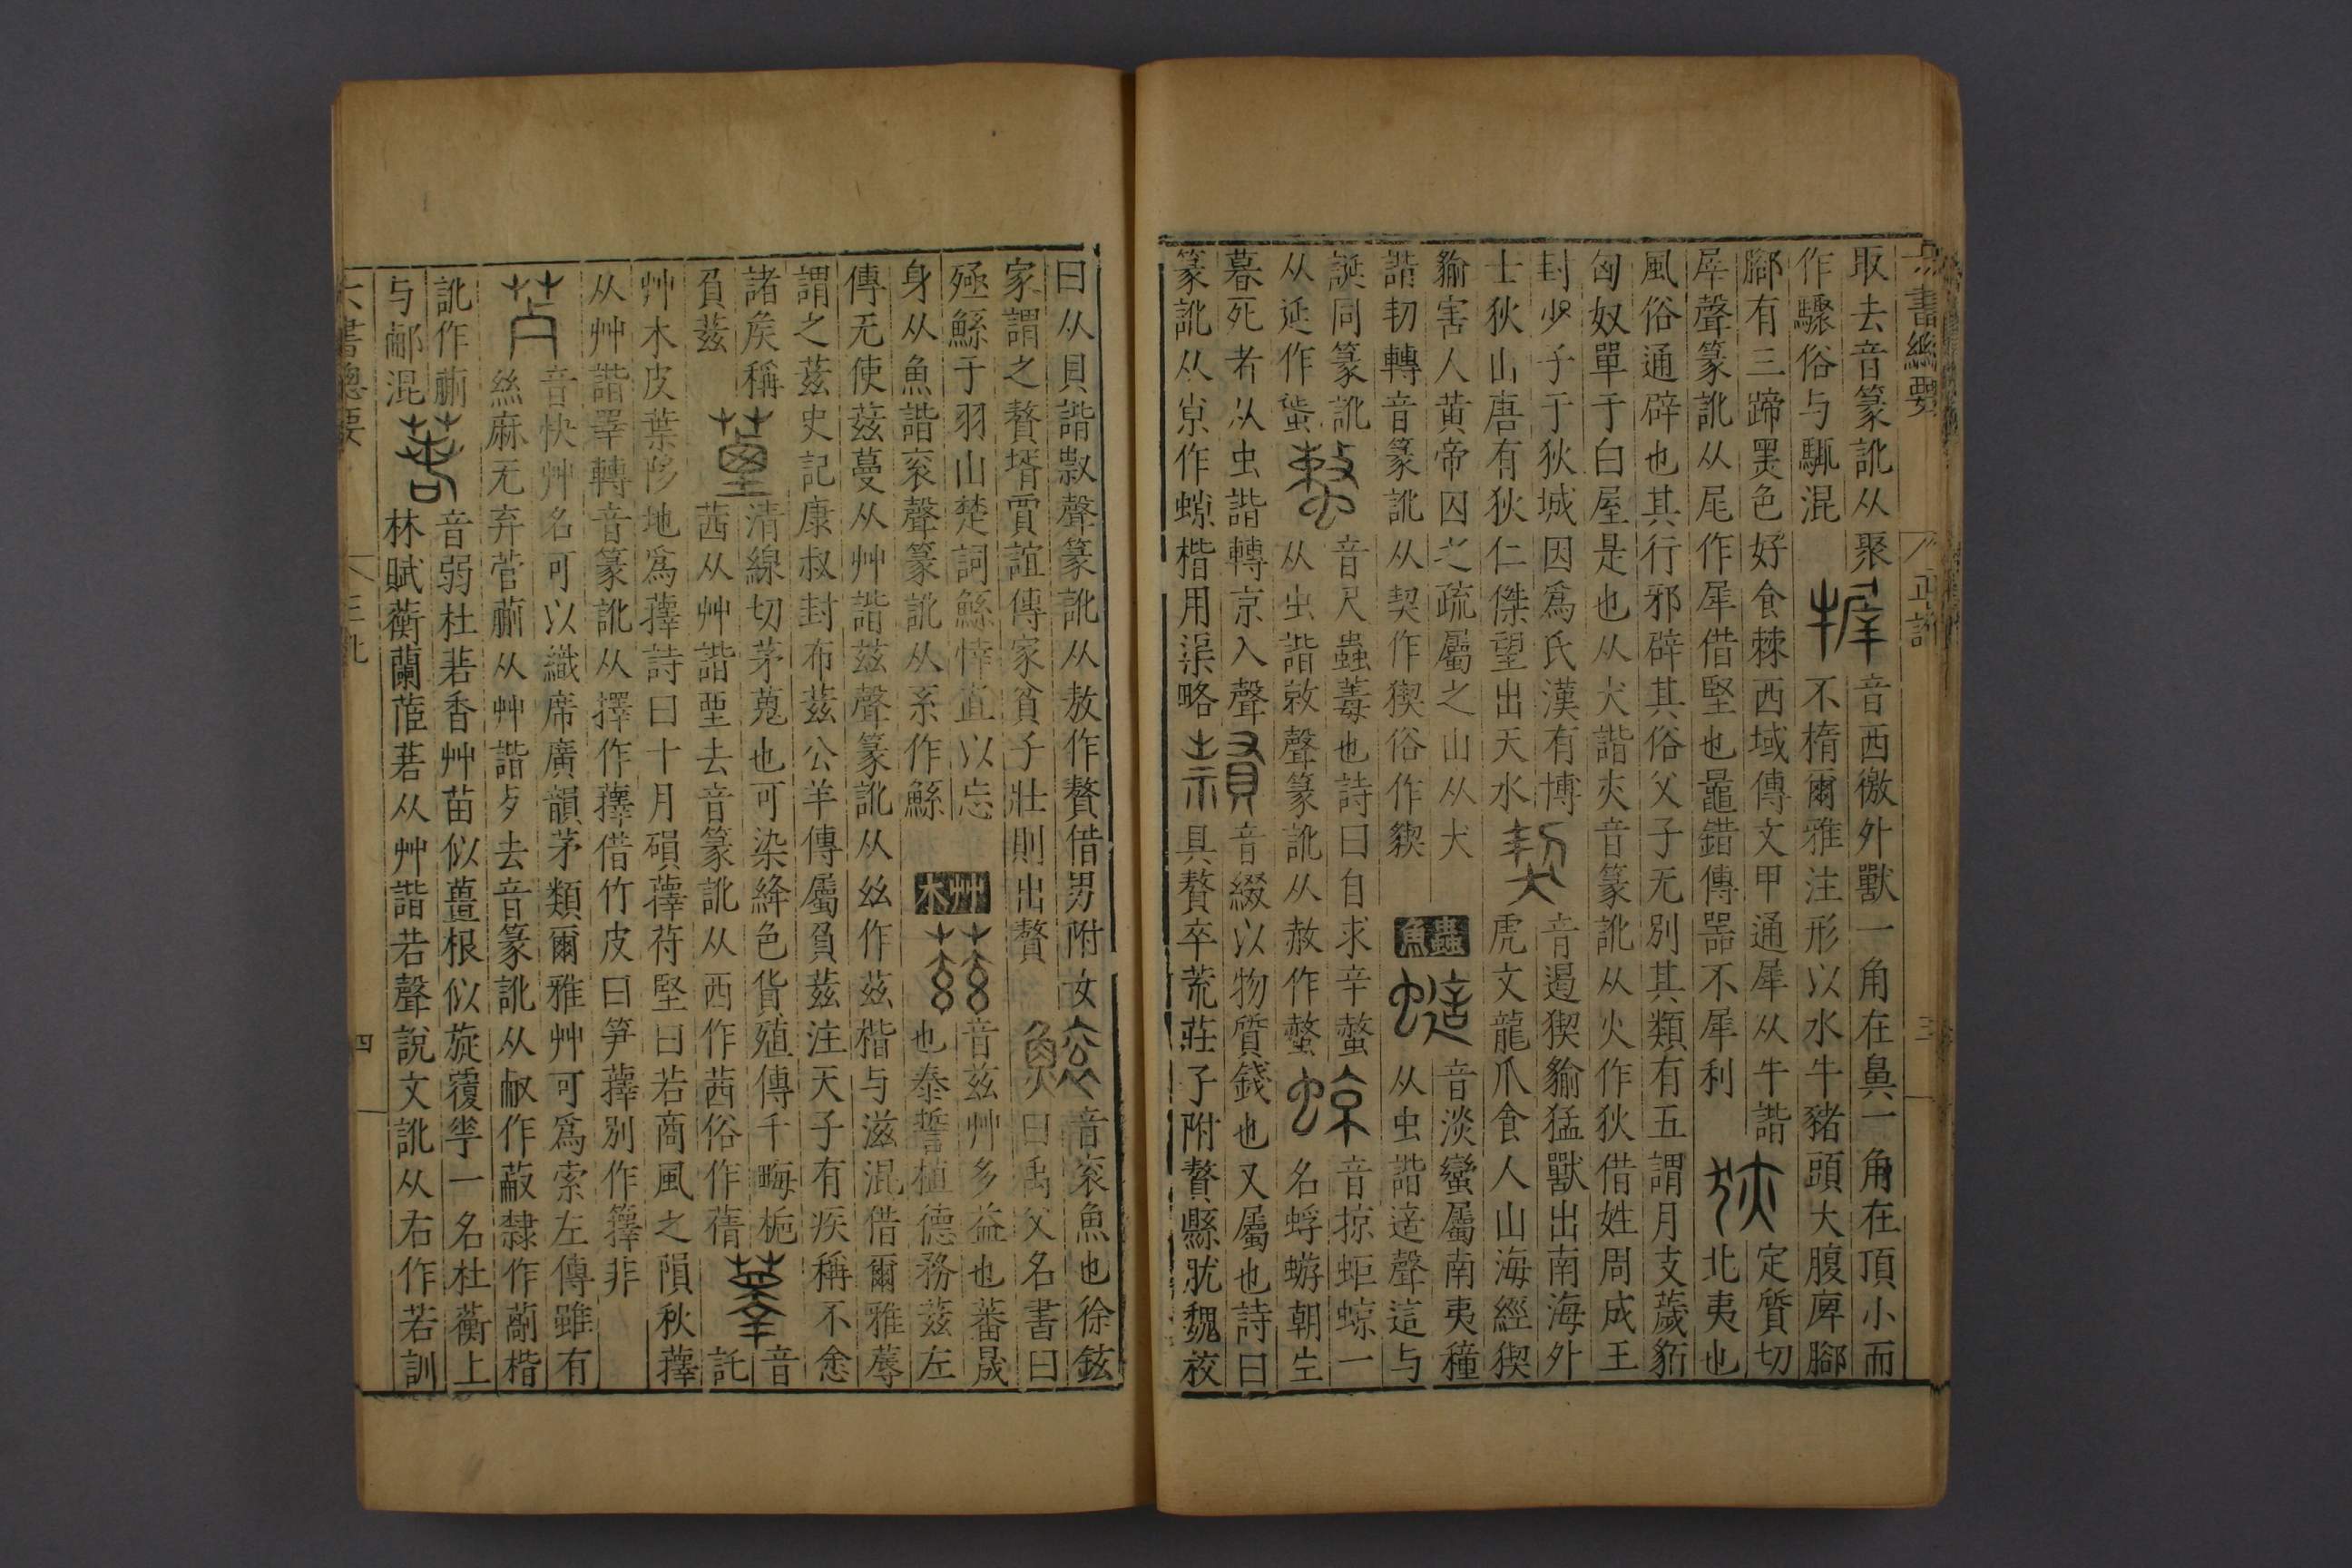 六書總要
正訛
三
取去音篆訛从聚
作驟俗与駎混
音西徼外獸一角在鼻一角在頂小而
不橢爾雅注形以水牛豬頭大腹庳腳
腳有三蹄黑色好食棘西域傳文甲通犀从牛諧
犀聲篆訛从尾作犀借堅也鼂錯傳器不犀利
定質切
北夷也
風俗通辟也其行邪辟其俗父子无別其類有五謂月支薉貊
匈奴單于白屋是也从犬諧夾音篆訛从火作狄借姓周成王
封少子于狄城因爲氏漢有博
士狄山唐有狄仁傑望出天水
音遏猰貐猛獸出南海外
虎文龍爪食人山海經猰
貐害人黃帝囚之疏屬之山从犬
諧㓞轉音篆訛从契作猰俗作䝟
蟲魚
音淡蠻屬南夷種
从虫諧這聲這与
誕同篆訛
从延作蜑
音尺蟲蓋也詩曰自求辛螫
从虫諧敕聲篆訛从赦作螫
音掠蚷蜋一
名蜉蝣朝生
暮死者从虫諧轉京入聲
篆訛从京作蜋楷用渠略
音綴以物質錢也又屬也詩曰
具贅卒荒莊子附贅縣肬魏筱
曰从貝諧敖聲篆訛从敖作贅借男附女
家謂之贅壻賈誼傳家貧子壯則出贅
音衮魚也徐鉉
曰禹父名書曰
殛鯀于羽山楚詞鯀悻直以忘
身从魚諧衮聲篆訛从系作鯀
艸木
音茲艸多益也蕃晟
也泰誓植德務茲左
傳无使茲蔓从艸諧茲聲篆訛从玆作茲楷与滋混借爾雅蓐
謂之茲史記康叔封布茲公羊傳屬負茲注天子有疾稱不悆
諸矦稱
負茲
清線切茅蒐也可染絳色貨殖傳千畮梔
茜从艸諧垔去音篆訛从西作茜俗作蒨
音
託
艸木皮葉陊地爲蘀詩曰十月隕蘀苻堅曰若商風之隕秋蘀
从艸諧睪轉音篆訛从擇作蘀借竹皮曰笋蘀別作籜非
音快艸名可以織席廣韻茅類爾雅艸可爲索左傳雖有
絲麻无弃菅蒯从艸諧歺去音篆訛从㕞作蔽隸作蒯楷
訛作蒯
与鄘混
音弱杜若香艸苗似薑根似旋覆𠌶一名杜蘅上
林賦蘅蘭茝若从艸諧若聲說文訛从右作若訓
六書總要
正訛
四